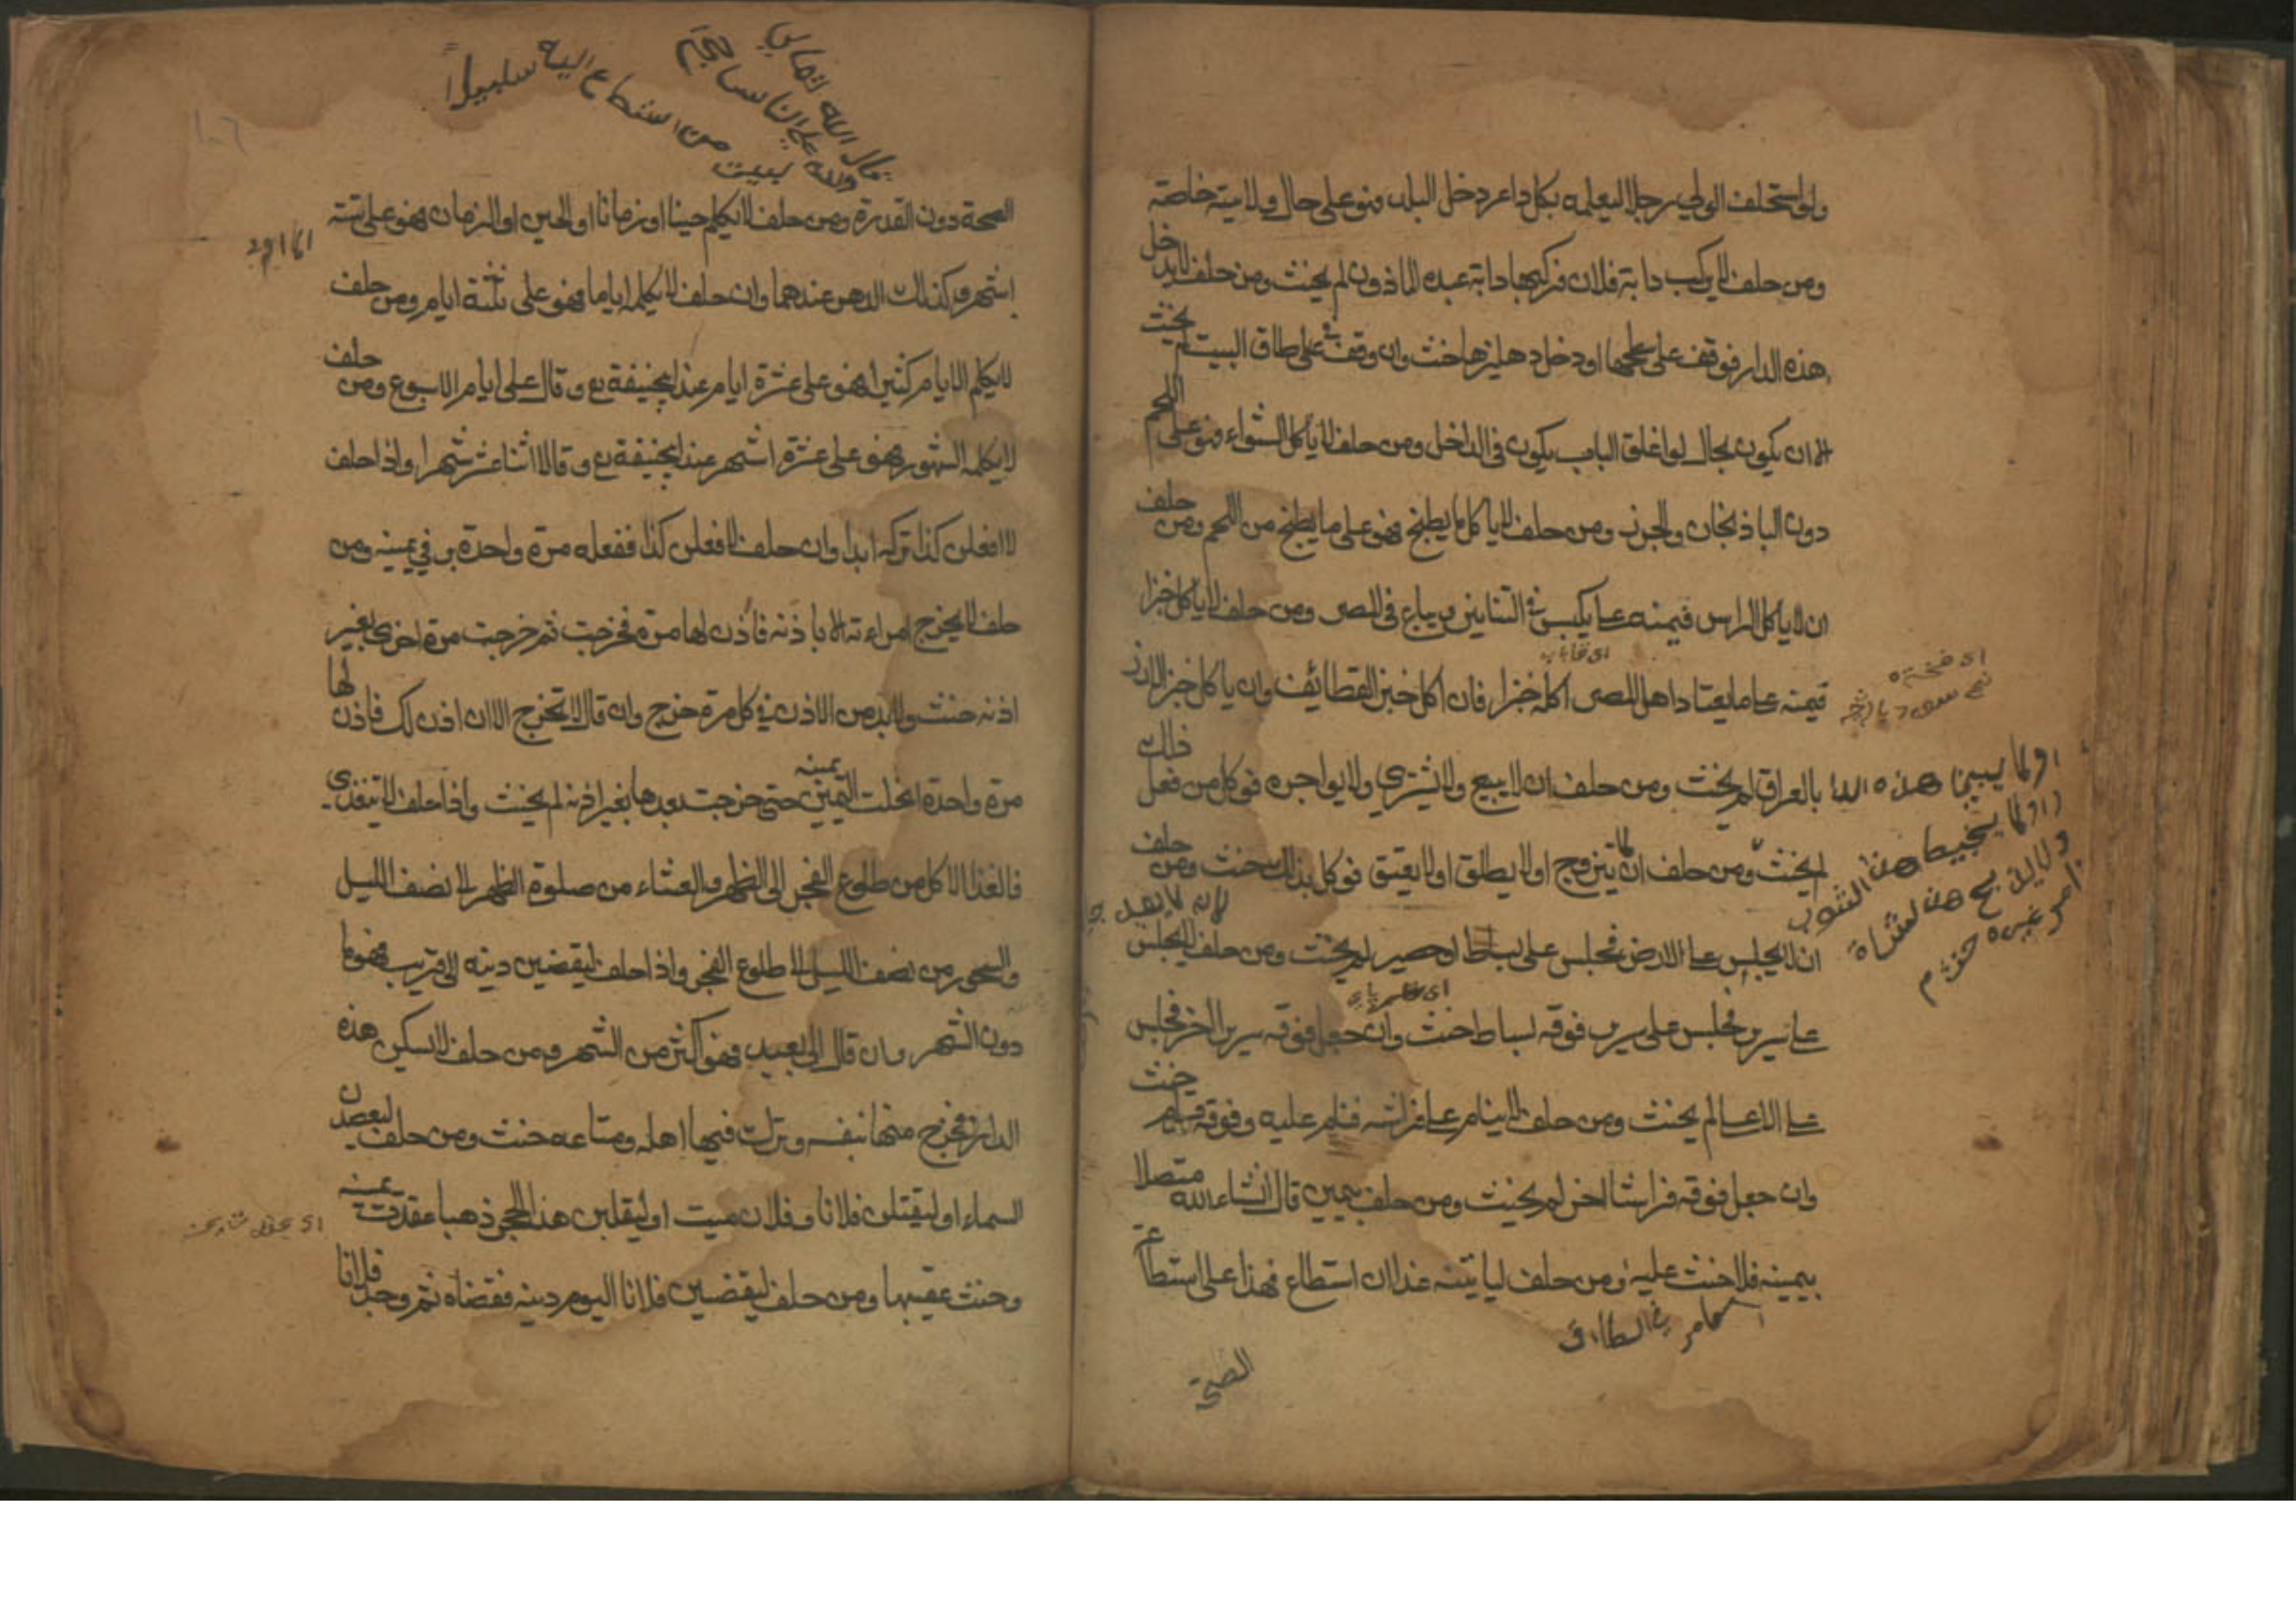 ولو استحلف الوالي رجلا ليعلمه بكل داعر دخل البلد فهو على حال ولايته خاصة
ومن حلف لا يركب دابة فلان فركبها دابة عبده الماذون لم يحنث ومن حلف لا يدخل
هذه الدار فوقف على سطحها او دخل دهليزها حنث وان وقف على طاق البيت لم يحنث
الا ان يكون بحال لو اغلق الباب يكون في الداخل ومن حلف لا ياكل الشواء فهو على اللحم
دون الباذنجان والجزر ومن حلف لا ياكل ما يطبخ فهو على ما يطبخ من اللحم ومن حلف
ان لا ياكل الراس فيمينه على ما يكبس في التنانير ويباع في المصر ومن حلف لا ياكل خبزا
فيمينه على ما يعتاد اهل المصر اكله خبزا فان اكل خبز القطائف وان ياكل خبز الارز
بالعراق لم يحنث ومن حلف ان لا يبيع ولا يشتري ولا يواجره فوكل من فعل ذلك
لم يحنث ومن حلف ان لا يتزوج او لا يطلق او لا يعتق فوكل بذلك حنث ومن حلف
ان لا يجلس على الارض فجلس على بساط او حصير لم يحنث ومن حلف لا يجلس
على سرير فجلس على سرير فوقه بساط حنث وان جعل فوقه سرير اخر فجلس
على الاعلى لم يحنث ومن حلف لا ينام على فراشه فنام عليه وفوقه قرام حنث
وان جعل فوقه فراشا اخر لم يحنث ومن حلف بيمين قال انشاءالله متصلا
بيمينه فلا حنث عليه ومن حلف لياتينه غدا ان استطاع فهذا على استطاعة
اولا يبيع هذه
او لا يخيط هذا الثوب
ولا يذبح هذه الشاة
امر غيره حنث
الصحة
قال الله تعالى
ولله على الناس حج
البيت من استطاع اليه سبيلا
الصحة دون القدرة ومن حلف لا يكلم حينا او زمانا او الحين او الزمان فهو على ستة
اشهر وكذلك الدهر عندهما وان حلف لا يكلمه اياما فهو على ثلثة ايام ومن حلف
لا يكلم الايام كثيرا فهو على عشرة ايام عند ابيحنيفة رح وقالا على ايام الاسبوع ومن حلف
لا يكلمه الشهور فهو على عشرة اشهر عند ابيحنيفة رح وقالا اثنا عشر شهرا واذا حلف
لا افعلن كذا تركه ابدا وان حلف لا فعلن كذا ففعله مرة واحدة بر في يمينه ومن
حلف لا يخرج امراءته الا باذنه فاذن لها مرة فخرجت ثم خرجت مرة اخرى بغير
اذنه حنث ولابد من الاذن في كل مرة خرج وان قال لا تخرج الا ان اذن لك فاذن لها
مرة واحدة انحلت اليمين حتى خرجت بعدها بغير اذنه لم يحنث واذا حلف لا يتغدى
فالغدا الاكل من طلوع الفجر الى الظهر والعشاء من صلوة الظهر الى نصف الليل
والسحور من نصف الليل الى طلوع الفجر واذا حلف ليقضين دينه الى قريب فهو ما
دون الشهر وان قال الى بعيد فهو اكثر من الشهر ومن حلف لا يسكن هذه
الدار فخرج منها بنفسه وترك فيها اهله ومتاعه حنث ومن حلف ليصعدن
السماء او ليقتلن فلانا وفلان ميت او ليقلبن هذا الحجر ذهبا عقدت يمينه
وحنث عقيبها ومن حلف ليقضين فلانا اليوم دينه فقضاه ثم وجد فلانا